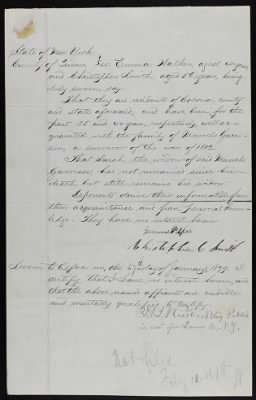 State of New York
County of Queens S.S. Emma Walker, aged 40 years
and Christopher Smith, aged 60 years, being
duly sworn, say
That they are residents of Corona, county
and state aforesaid, and have been for the
past 35 and 20 years, respectively, well ac-
quainted with the family of
a survivor of the war of 1812
That Sarah, the widow of said
has not remained since his
death but still remains his widow.
Deponents derive their information from
their acquaintance and from personal know-
ledge. They have no interest herein
Christopher C Smith
Sworn to before me, this 27th day of January, 1879. I
certify that I have no interest herein, and
that the above named affiants are credible
and mentally qualified to testify
Notary Public
in and for Queens Co. N.Y.
Not filed
Feby 10 1879